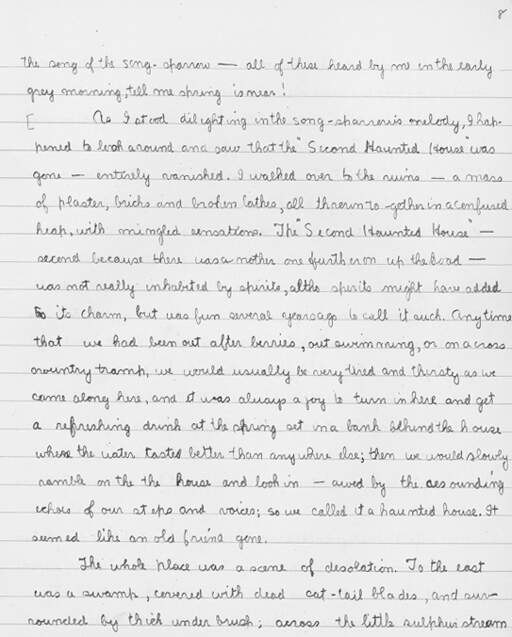 8
the song of the song-sparrow — all of these heard by me in the early
grey morning, tell me spring is near!
[ As I stood dilighting in the song-sparrow's melody, I hap-
pened to look around and saw that the "Second Haunted House" was
gone — entirely vanished. I walked over to the ruins — a mass
of plaster, bricks and broken lathes, all thrown to-gether in a confused
heap, with mingled sensations. The "Second Haunted House" —
second because there was another one further on up the road —
was not really inhabited by spirits, altho spirits might have added
to its charm, but was fun several years ago to call it such. Anytime
that we had been out after berries, out swimming, or on a cross
country tramp, we would usually be very tired and thirsty as we
came along here, and it was always a joy to turn in here and get
a refreshing drink at the spring set in a bank behind the house
where the water tasted better than anywhere else; then we would slowly
ramble on the the house and look in — awed by the resounding
echoes of our steps and voices; so we called it a haunted house. It
seemed like an old friend gone.
The whole place was a scene of desolation. To the east
was a swamp, covered with dead cat-tail blades, and sur-
rounded by thick under brush; across the little sulphur stream